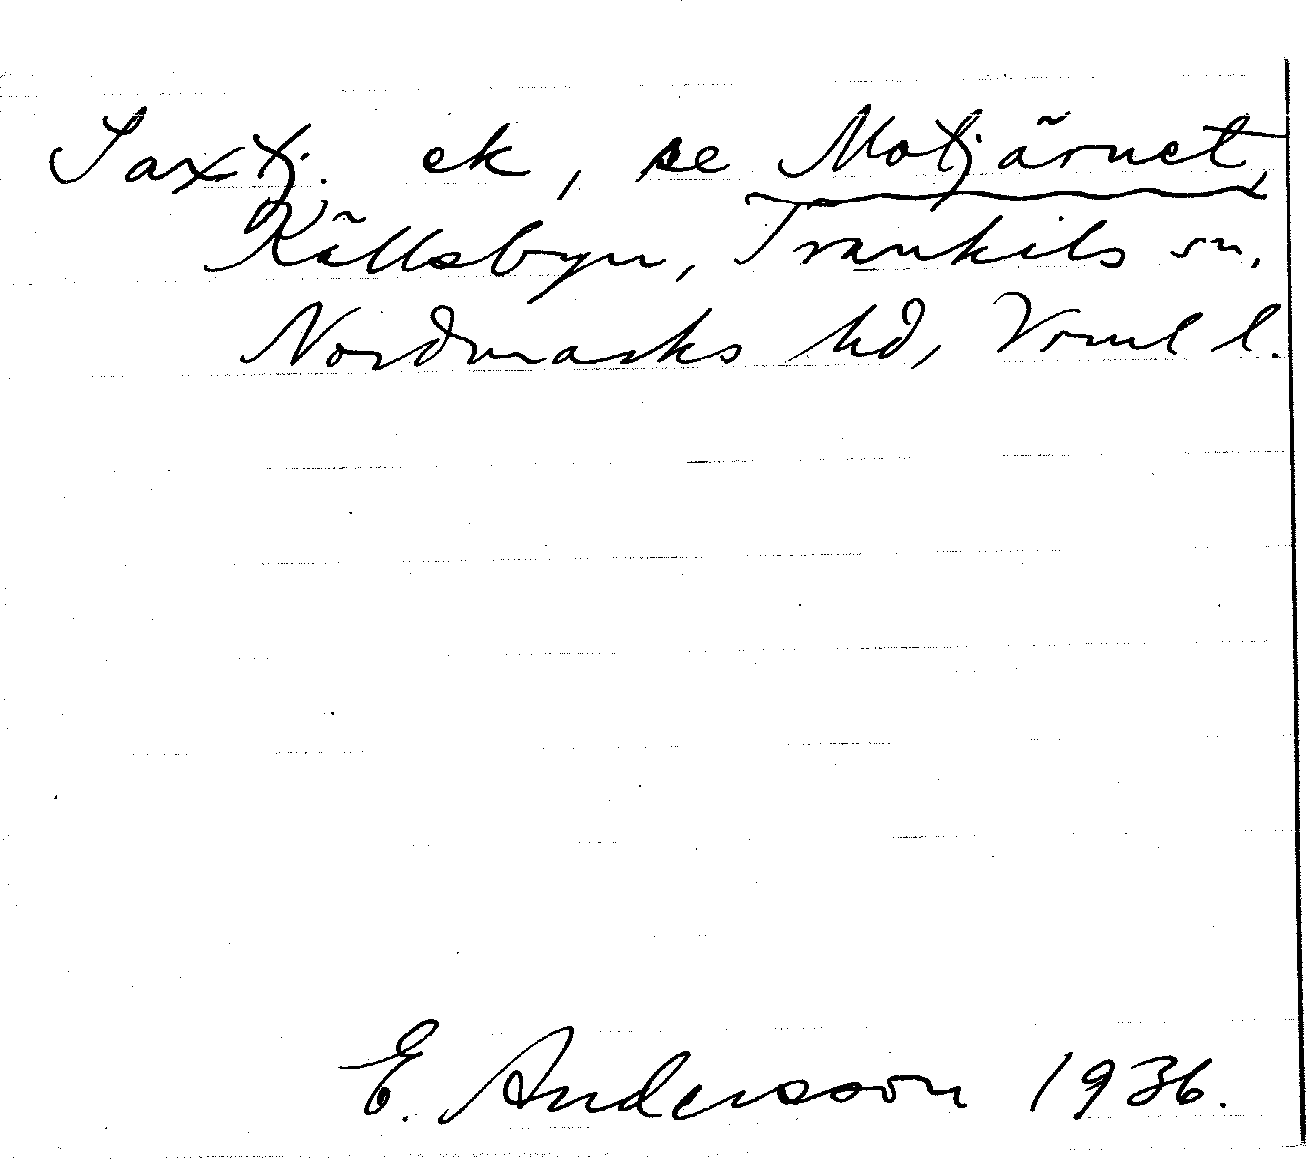 Saxtj. ek, se Motjärnet,
Källsbyn, Trankils sn,
Nordmarks hd, Vrml l.
E. Andersson 1936.